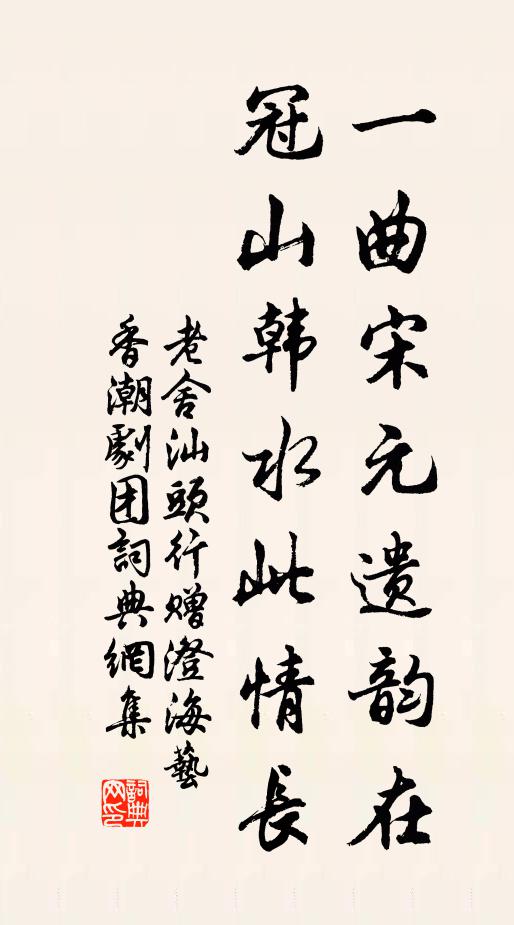 一曲宋元遗韵在
冠山韩水此情長
老舍汕頭行赠澄海藝
香潮劇团詞典網集
詞典网印